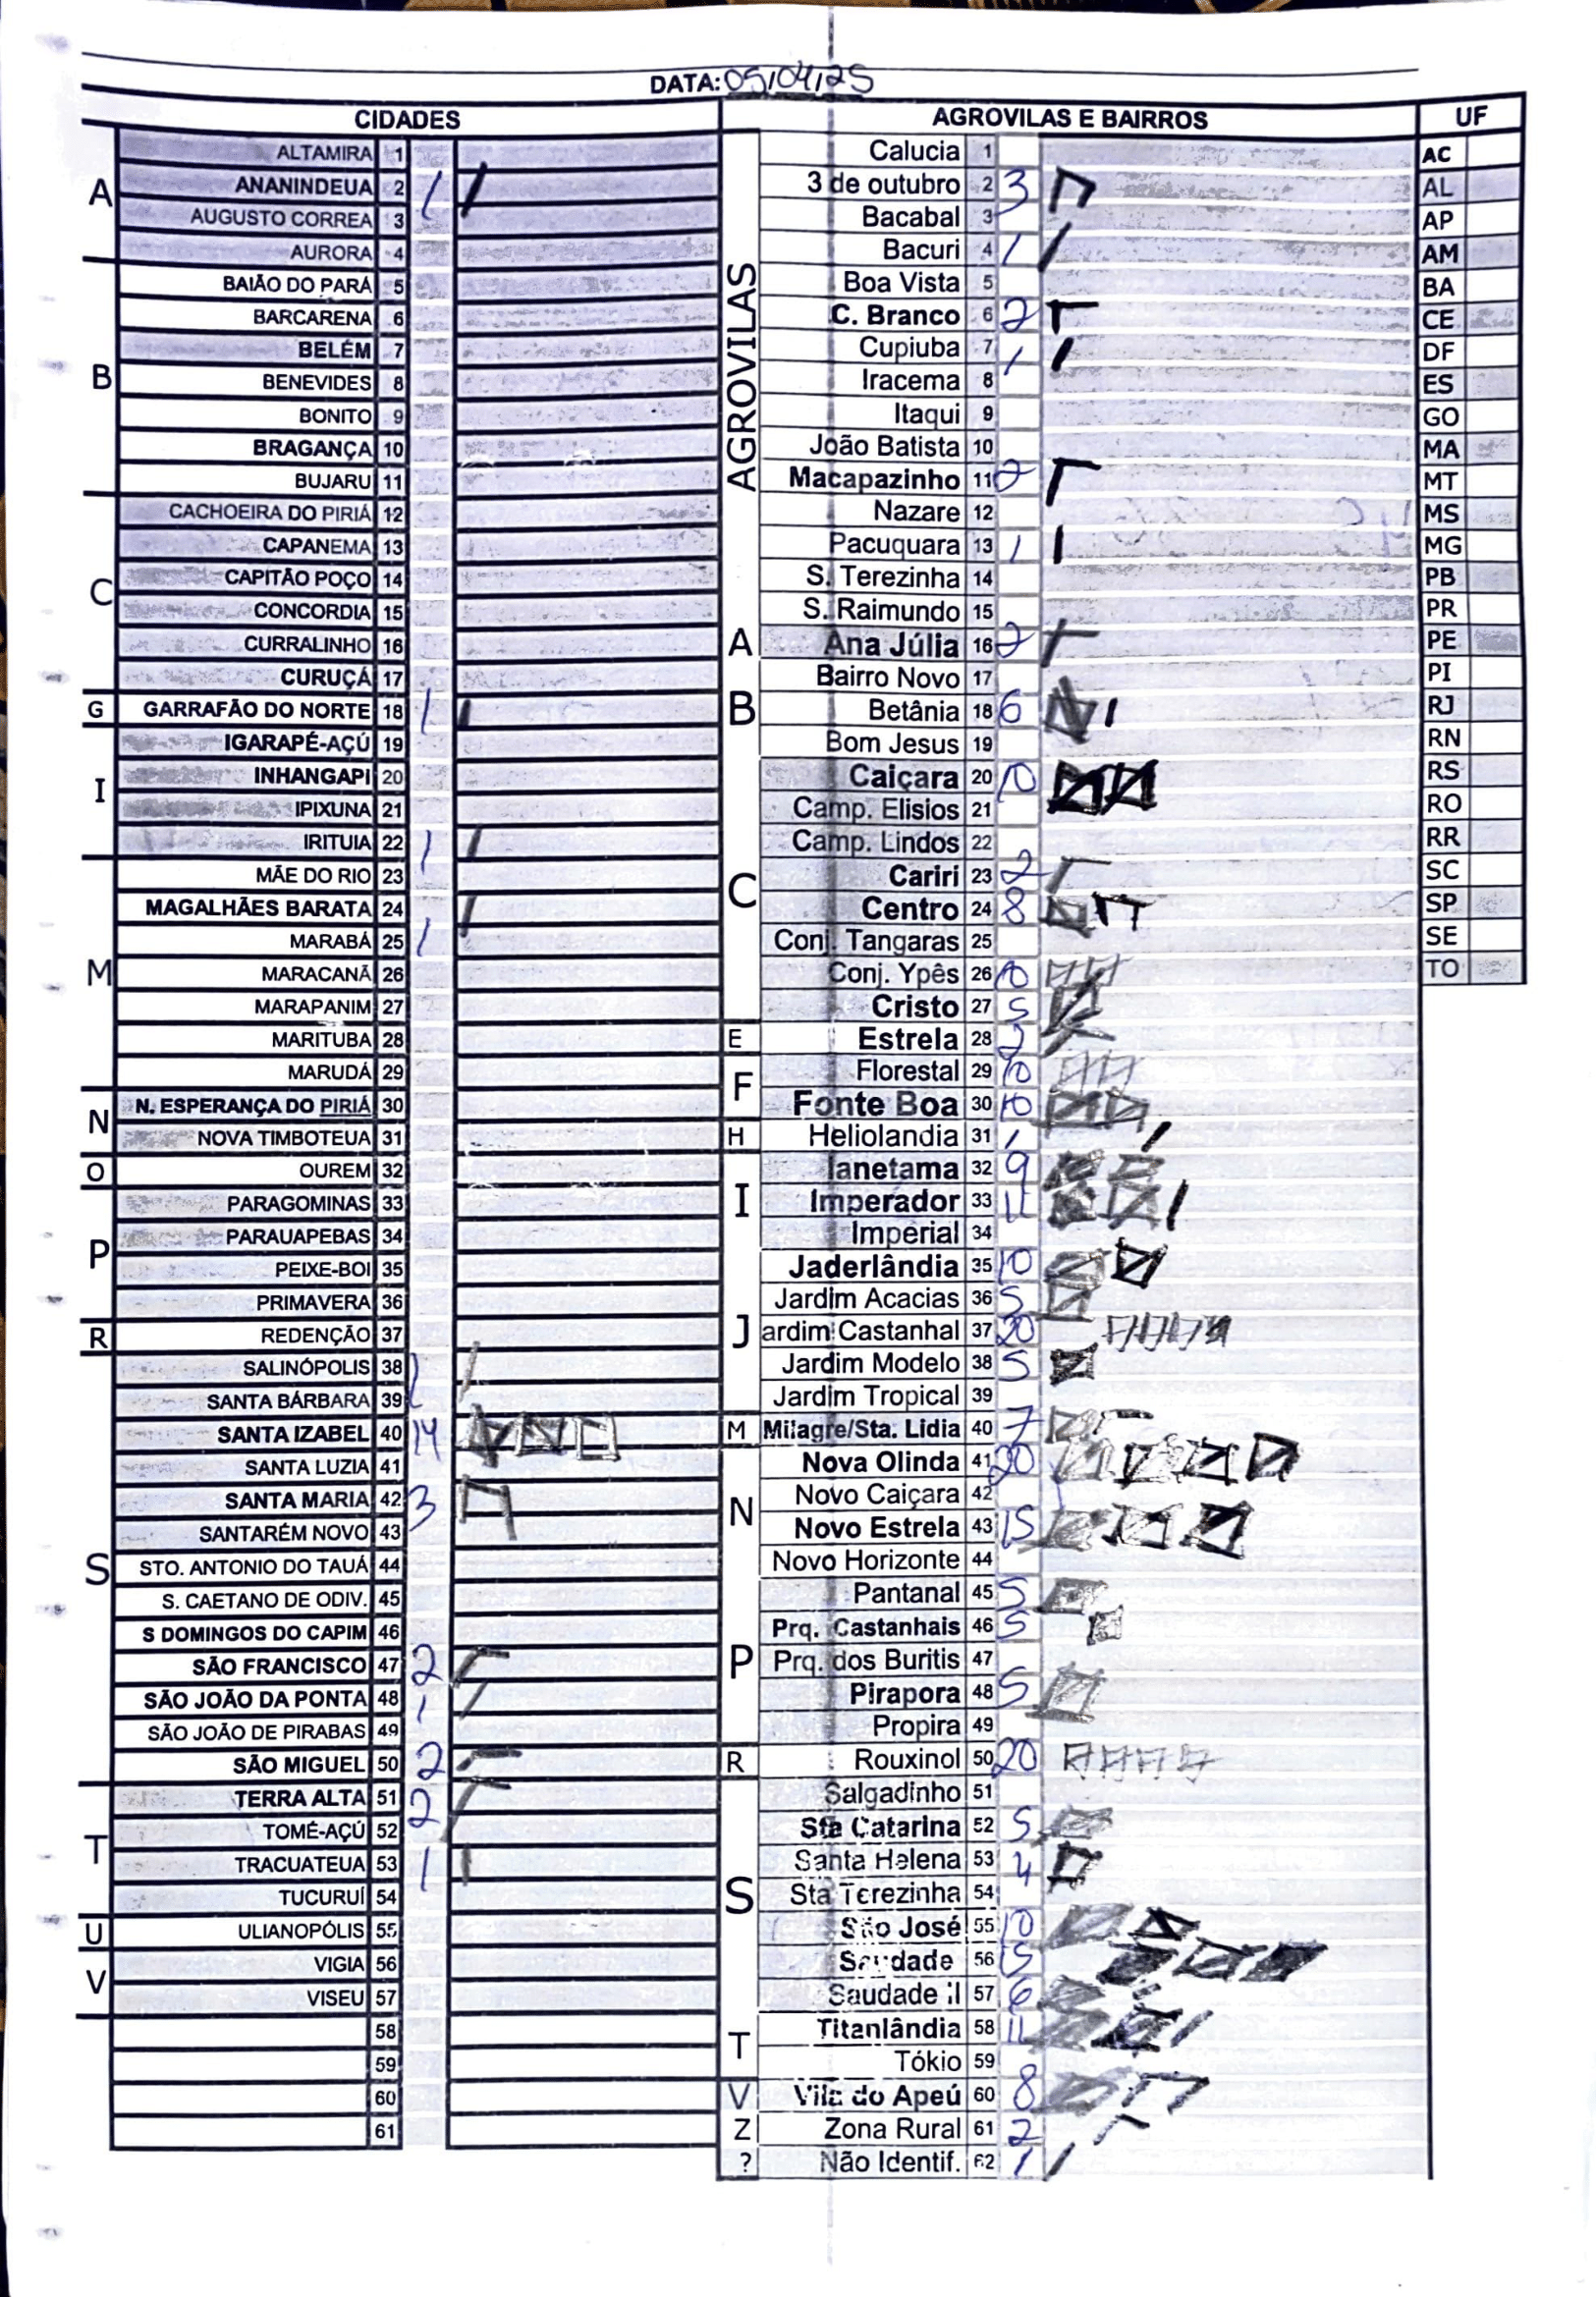 DATA: 05/04/25
CIDADES
A
ALTAMIRA 1
ANANINDEUA 2 1
AUGUSTO CORREA 3
AURORA 4
B
BAIÃO DO PARÁ 5
BARCARENA 6
BELÉM 7
BENEVIDES 8
BONITO 9
BRAGANÇA 10
BUJARU 11
C
CACHOEIRA DO PIRIÁ 12
CAPANEMA 13
CAPITÃO POÇO 14
CONCORDIA 15
CURRALINHO 16
CURUÇÁ 17
G
GARRAFÃO DO NORTE 18 1
I
IGARAPÉ-AÇÚ 19
INHANGAPI 20
IPIXUNA 21
IRITUIA 22 1
M
MÃE DO RIO 23
MAGALHÃES BARATA 24
MARABÁ 25 1
MARACANÃ 26
MARAPANIM 27
MARITUBA 28
MARUDÁ 29
N
N. ESPERANÇA DO PIRIÁ 30
NOVA TIMBOTEUA 31
O
OUREM 32
P
PARAGOMINAS 33
PARAUAPEBAS 34
PEIXE-BOI 35
PRIMAVERA 36
R
REDENÇÃO 37
S
SALINÓPOLIS 38 1
SANTA BÁRBARA 39
SANTA IZABEL 40 14
SANTA LUZIA 41
SANTA MARIA 42 3
SANTARÉM NOVO 43
STO. ANTONIO DO TAUÁ 44
S. CAETANO DE ODIV. 45
S DOMINGOS DO CAPIM 46
SÃO FRANCISCO 47 2
SÃO JOÃO DA PONTA 48 1
SÃO JOÃO DE PIRABAS 49
SÃO MIGUEL 50 2
T
TERRA ALTA 51 2
TOMÉ-AÇÚ 52
TRACUATEUA 53 1
TUCURUÍ 54
U
ULIANOPÓLIS 55
V
VIGIA 56
VISEU 57
58
59
60
61
AGROVILAS E BAIRROS
AGROVILAS
Calucia 1
3 de outubro 2 3
Bacabal 3
Bacuri 4 1
Boa Vista 5
C. Branco 6 2
Cupiuba 7 1
Iracema 8
Itaqui 9
João Batista 10
Macapazinho 11 2
Nazare 12
Pacuquara 13 1
S. Terezinha 14
S. Raimundo 15
A
Ana Júlia 16 2
B
Bairro Novo 17
Betânia 18 6
Bom Jesus 19
C
Caiçara 20 10
Camp. Elisios 21
Camp. Lindos 22
Cariri 23 2
Centro 24 8
Conj. Tangaras 25
Conj. Ypês 26 10
Cristo 27 5
E
Estrela 28 2
F
Florestal 29 10
Fonte Boa 30 10
H
Heliolandia 31 1
I
Ianetama 32 9
Imperador 33 11
Imperial 34
J
Jaderlândia 35 10
Jardim Acacias 36 5
ardim Castanhal 37 20
Jardim Modelo 38 5
Jardim Tropical 39
M
Milagre/Sta. Lidia 40 7
N
Nova Olinda 41 20
Novo Caiçara 42
Novo Estrela 43 15
Novo Horizonte 44
P
Pantanal 45 5
Prq. Castanhais 46 5
Prq. dos Buritis 47
Pirapora 48 5
Propira 49
R
Rouxinol 50 20
S
Salgadinho 51
Sta Catarina 52 5
Santa Helena 53 4
Sta Terezinha 54
São José 55 10
Saudade 56 15
Saudade II 57 6
T
Titanlândia 58 11
Tókio 59
V
Vila do Apeú 60 8
Z
Zona Rural 61 2
?
Não Identif. 62 1
UF
AC
AL
AP
AM
BA
CE
DF
ES
GO
MA
MT
MS
MG
PB
PR
PE
PI
RJ
RN
RS
RO
RR
SC
SP
SE
TO